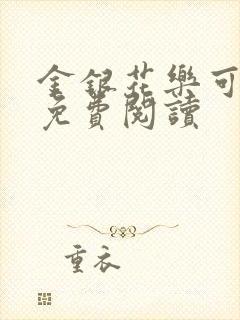 金銀花樂可
免費閱讀
重衣